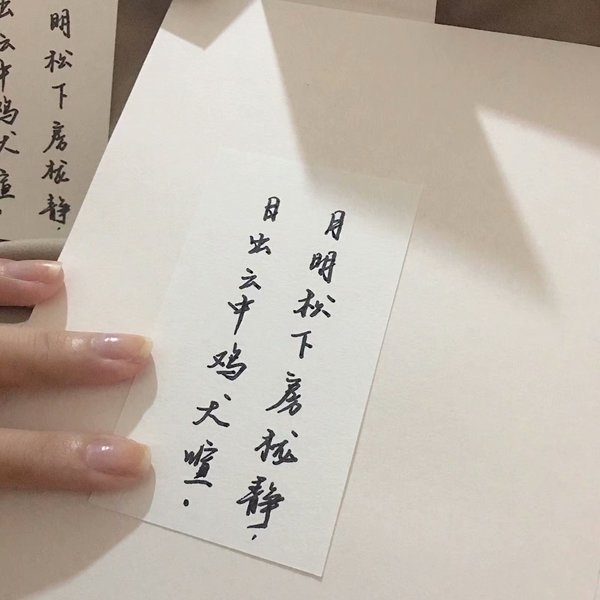 月明松下房栊静，
日出云中鸡犬喧.
明松下房栊静，
出云中鸡犬喧.